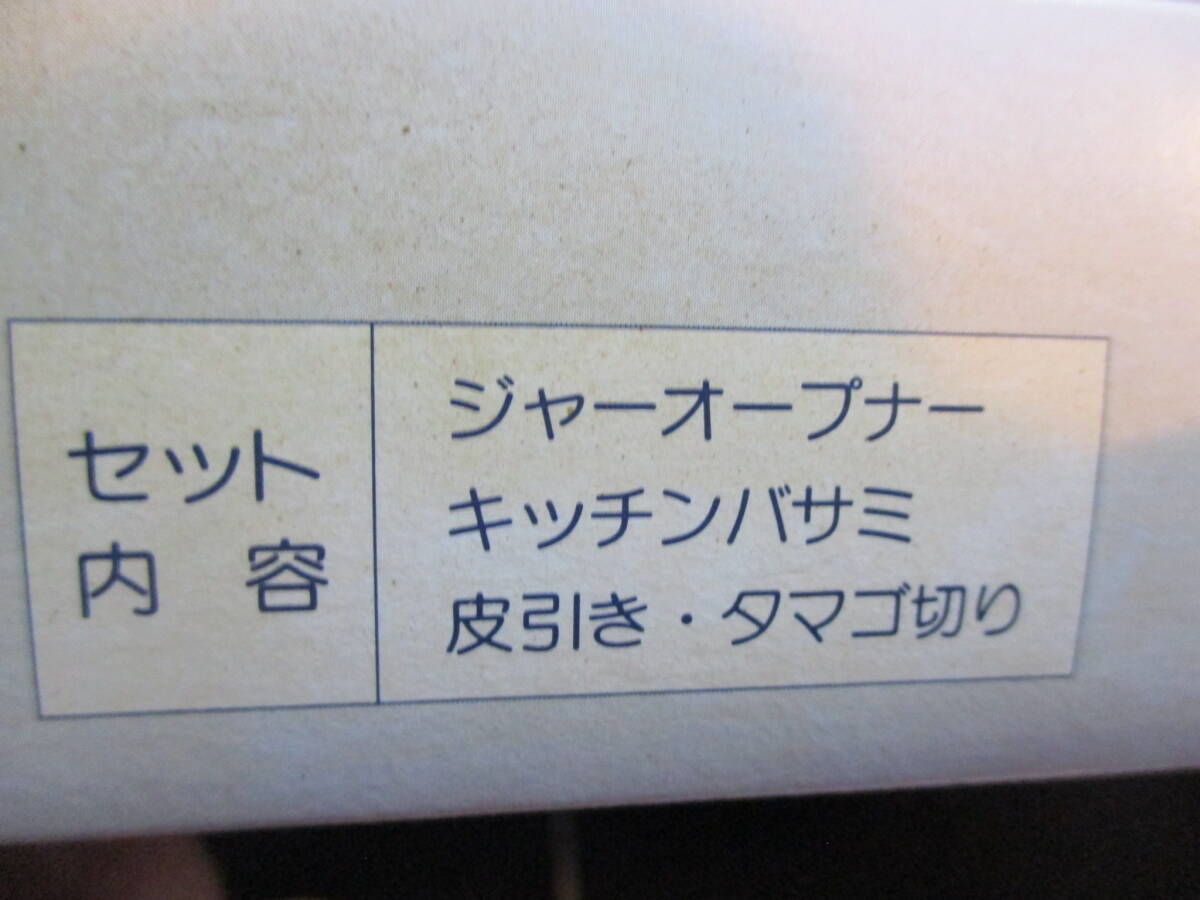 セット
内容
ジャーオープナー
キッチンバサミ
皮引き・タマゴ切り